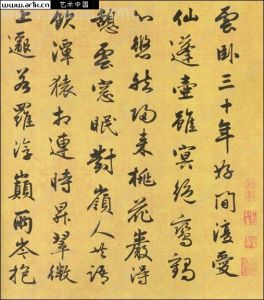 艺术中国
雲臥三十年好閒復愛
仙蓬壺雖冥絕鸞鶴
心悠然歸來桃花巖得
憩雲窓眠對嶺人共語
飲潭猿相連時昇翠微
上邈若羅浮巔兩岑抱